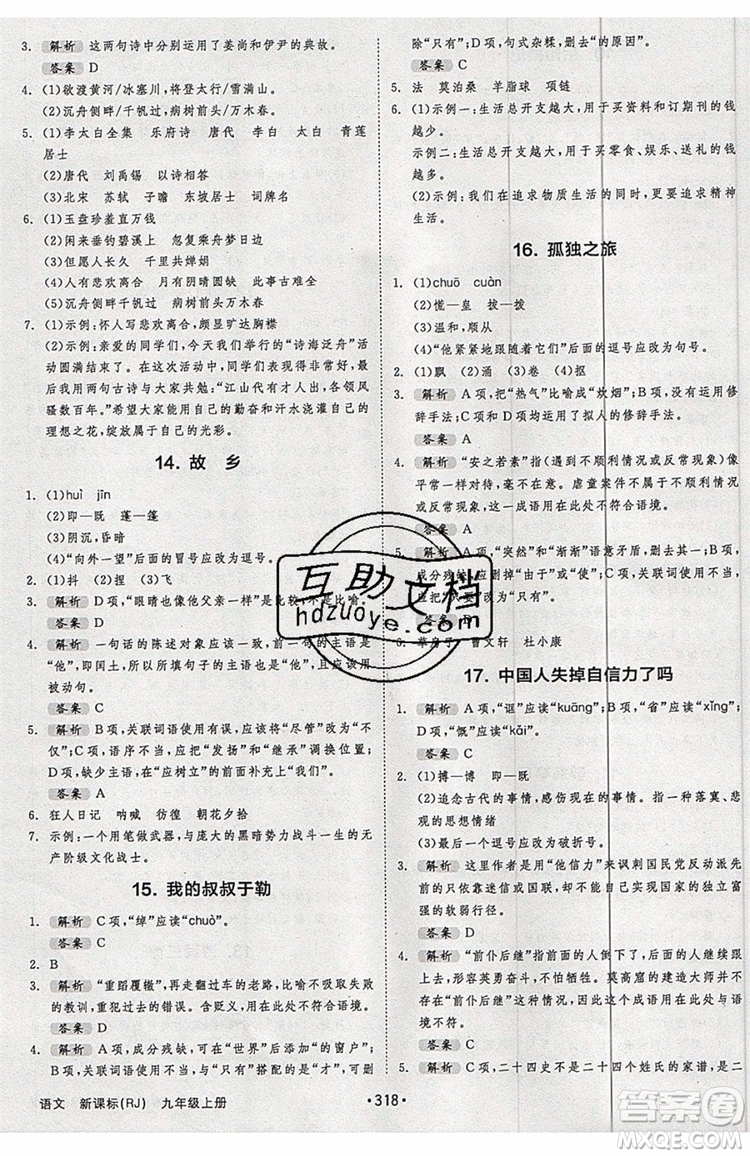 3. 解析 这两句诗中分别运用了姜尚和伊尹的典故。
答案 D
4. (1)欲渡黄河/冰塞川，将登太行/雪满山。
(2)沉舟侧畔/千帆过，病树前头/万木春。
5. (1)李太白全集 乐府诗 唐代 李白 太白 青莲
居士
(2)唐代 刘禹锡 以诗相答
(3)北宋 苏轼 子瞻 东坡居士 词牌名
6. (1)玉盘珍羞直万钱
(2)闲来垂钓碧溪上 忽复乘舟梦日边
(3)但愿人长久 千里共婵娟
(4)人有悲欢离合 月有阴晴圆缺 此事古难全
(5)沉舟侧畔千帆过 病树前头万木春
7. (1)示例：怀人写悲欢离合，颇显旷达胸襟
(2)示例：亲爱的同学们，今天的“诗海泛舟”活
动圆满结束了。在这次活动中，我们收获颇丰，最
后我用两句古诗与大家共勉：“江山代有才人出，各领风
骚数百年。”希望大家用我们的勤奋和汗水浇灌自己的
理想之花，绽放属于自己的光彩。
14. 故 乡
1. (1)huì jīn
(2)即—既 蓬—篷
(3)阴沉，昏暗
(4)“向外一望”后面的冒号应改为逗号。
2. (1)抖 (2)捏 (3)飞
3. 解析 D项，“眼睛也像他父亲一样”是比较，不是比喻。
答案 D
4. 解析 一句话的陈述对象应该一致，前一句的主语是
“他”，即闰土，所以所填句子的主语也应该是“他”，应为
被动句。
答案 C
5. 解析 B项，关联词语使用有误，应该将“尽管”改为“不
仅”；C项，语序不当，应将“发扬”和“继承”调换位置；D
项，缺少主语，在“应树立”的前面补充上“我们”。
答案 A
6. 狂人日记 呐喊 彷徨 朝花夕拾
7. 示例：一个用笔做武器，与庞大的黑暗势力战斗一生的无
产阶级文化战士。
15. 我的叔叔于勒
1. 解析 C项，“绰”应读“chuò”。
答案 C
2. B
3. 解析 “重蹈覆辙”，再走翻过车的老路，比喻不吸取失败
的教训，重犯过去的错误。含贬义，用在此处不符合语境。
答案 D
4. 解析 A项，成分残缺，可在“世界”后添加“的窗户”；
除“只有”；D项，句式杂糅，删去“的原因”。
答案 C
5. 法 莫泊桑 羊脂球 项链
6. (1)示例一：生活总开支越大，用于买资料和订期刊的钱
越少。
示例二：生活总开支越大，用于买零食、娱乐、送礼的钱
越多。
(2)示例：我们在追求物质生活的同时，更要追求精神
生活。
16. 孤独之旅
1. (1)chuō cuàn
(2)慌—皇 拔—拨
(3)温和，顺从
(4)“他紧紧地跟随着父亲”后面的逗号应改为句号。
2. (1)飘 (2)涌 (3)卷 (4)抠
3. 解析 A项，把“热气”比喻成“炊烟”，运用了比喻的修
辞手法；B、C和D项均运用了拟人的修辞手法。
答案 A
4. 解析 “安之若素”指(遇到不顺利情况或反常现象)像
平常一样对待，毫不在意。虐童案件不是不顺利情况或
反常现象，这一成语用在此处不符合语境。
答案 A
5. 解析 A项，“突然”和“渐渐”语义矛盾；B项，
成分残缺，应删掉“由于”或“使”；C项，关联词使用不
当，应把“只要”改为“只有”。
答案 D
6. 草房子 曹文轩 杜小康
17. 中国人失掉自信力了吗
1. 解析 A项，“诓”应读“kuāng”；B项，“省”应读“xǐng”；
D项，“慨”应读“kǎi”。
答案 C
2. (1)搏—博 即—既
(2)追念古代的事情，感伤历史的事情，有一种落寞、悲
观的思想情绪
(3)最后一个逗号应改为句号。
3. 解析 这里作者用“他信力”来讽刺国民党反动派先前
的只依赖实施或国联，却不相信本国家的独立富
强的软弱行径。
答案 D
4. 解析 “前仆后继”，前面的人倒下了，后面的人继续跟
上来，形容英勇奋斗，不怕牺牲。莫高窟的建造大师们
“前仆后继”没有根据，因而这个成语用在此处与语境
不符。
答案 C
5. 解析 C项，二十四史不是二十四个姓氏的家谱，是二
语文 新课标(RJ) 九年级上册
·318·
互助文档
hdzuoye.com
答案圈
MXQE.COM